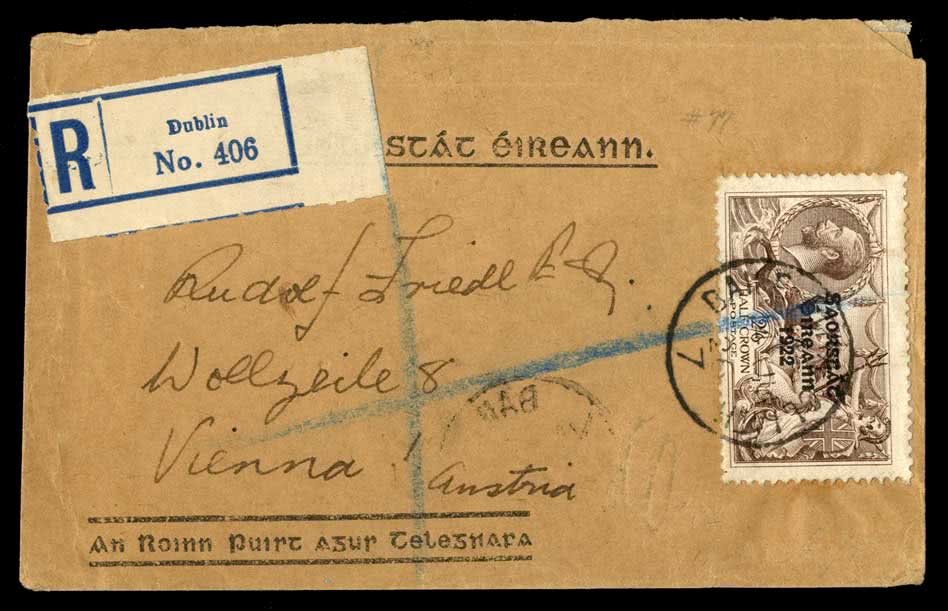 R
Dublin
No. 406
STÁT ÉIREANN.
#77
Rudolf Friedl
Wollzeile 8
Vienna 1
Austria
An Roinn Puirt agus Telegrafa
HALF CROWN
2/6
POSTAGE
SAORSTÁT
ÉIREANN
1922
BAN